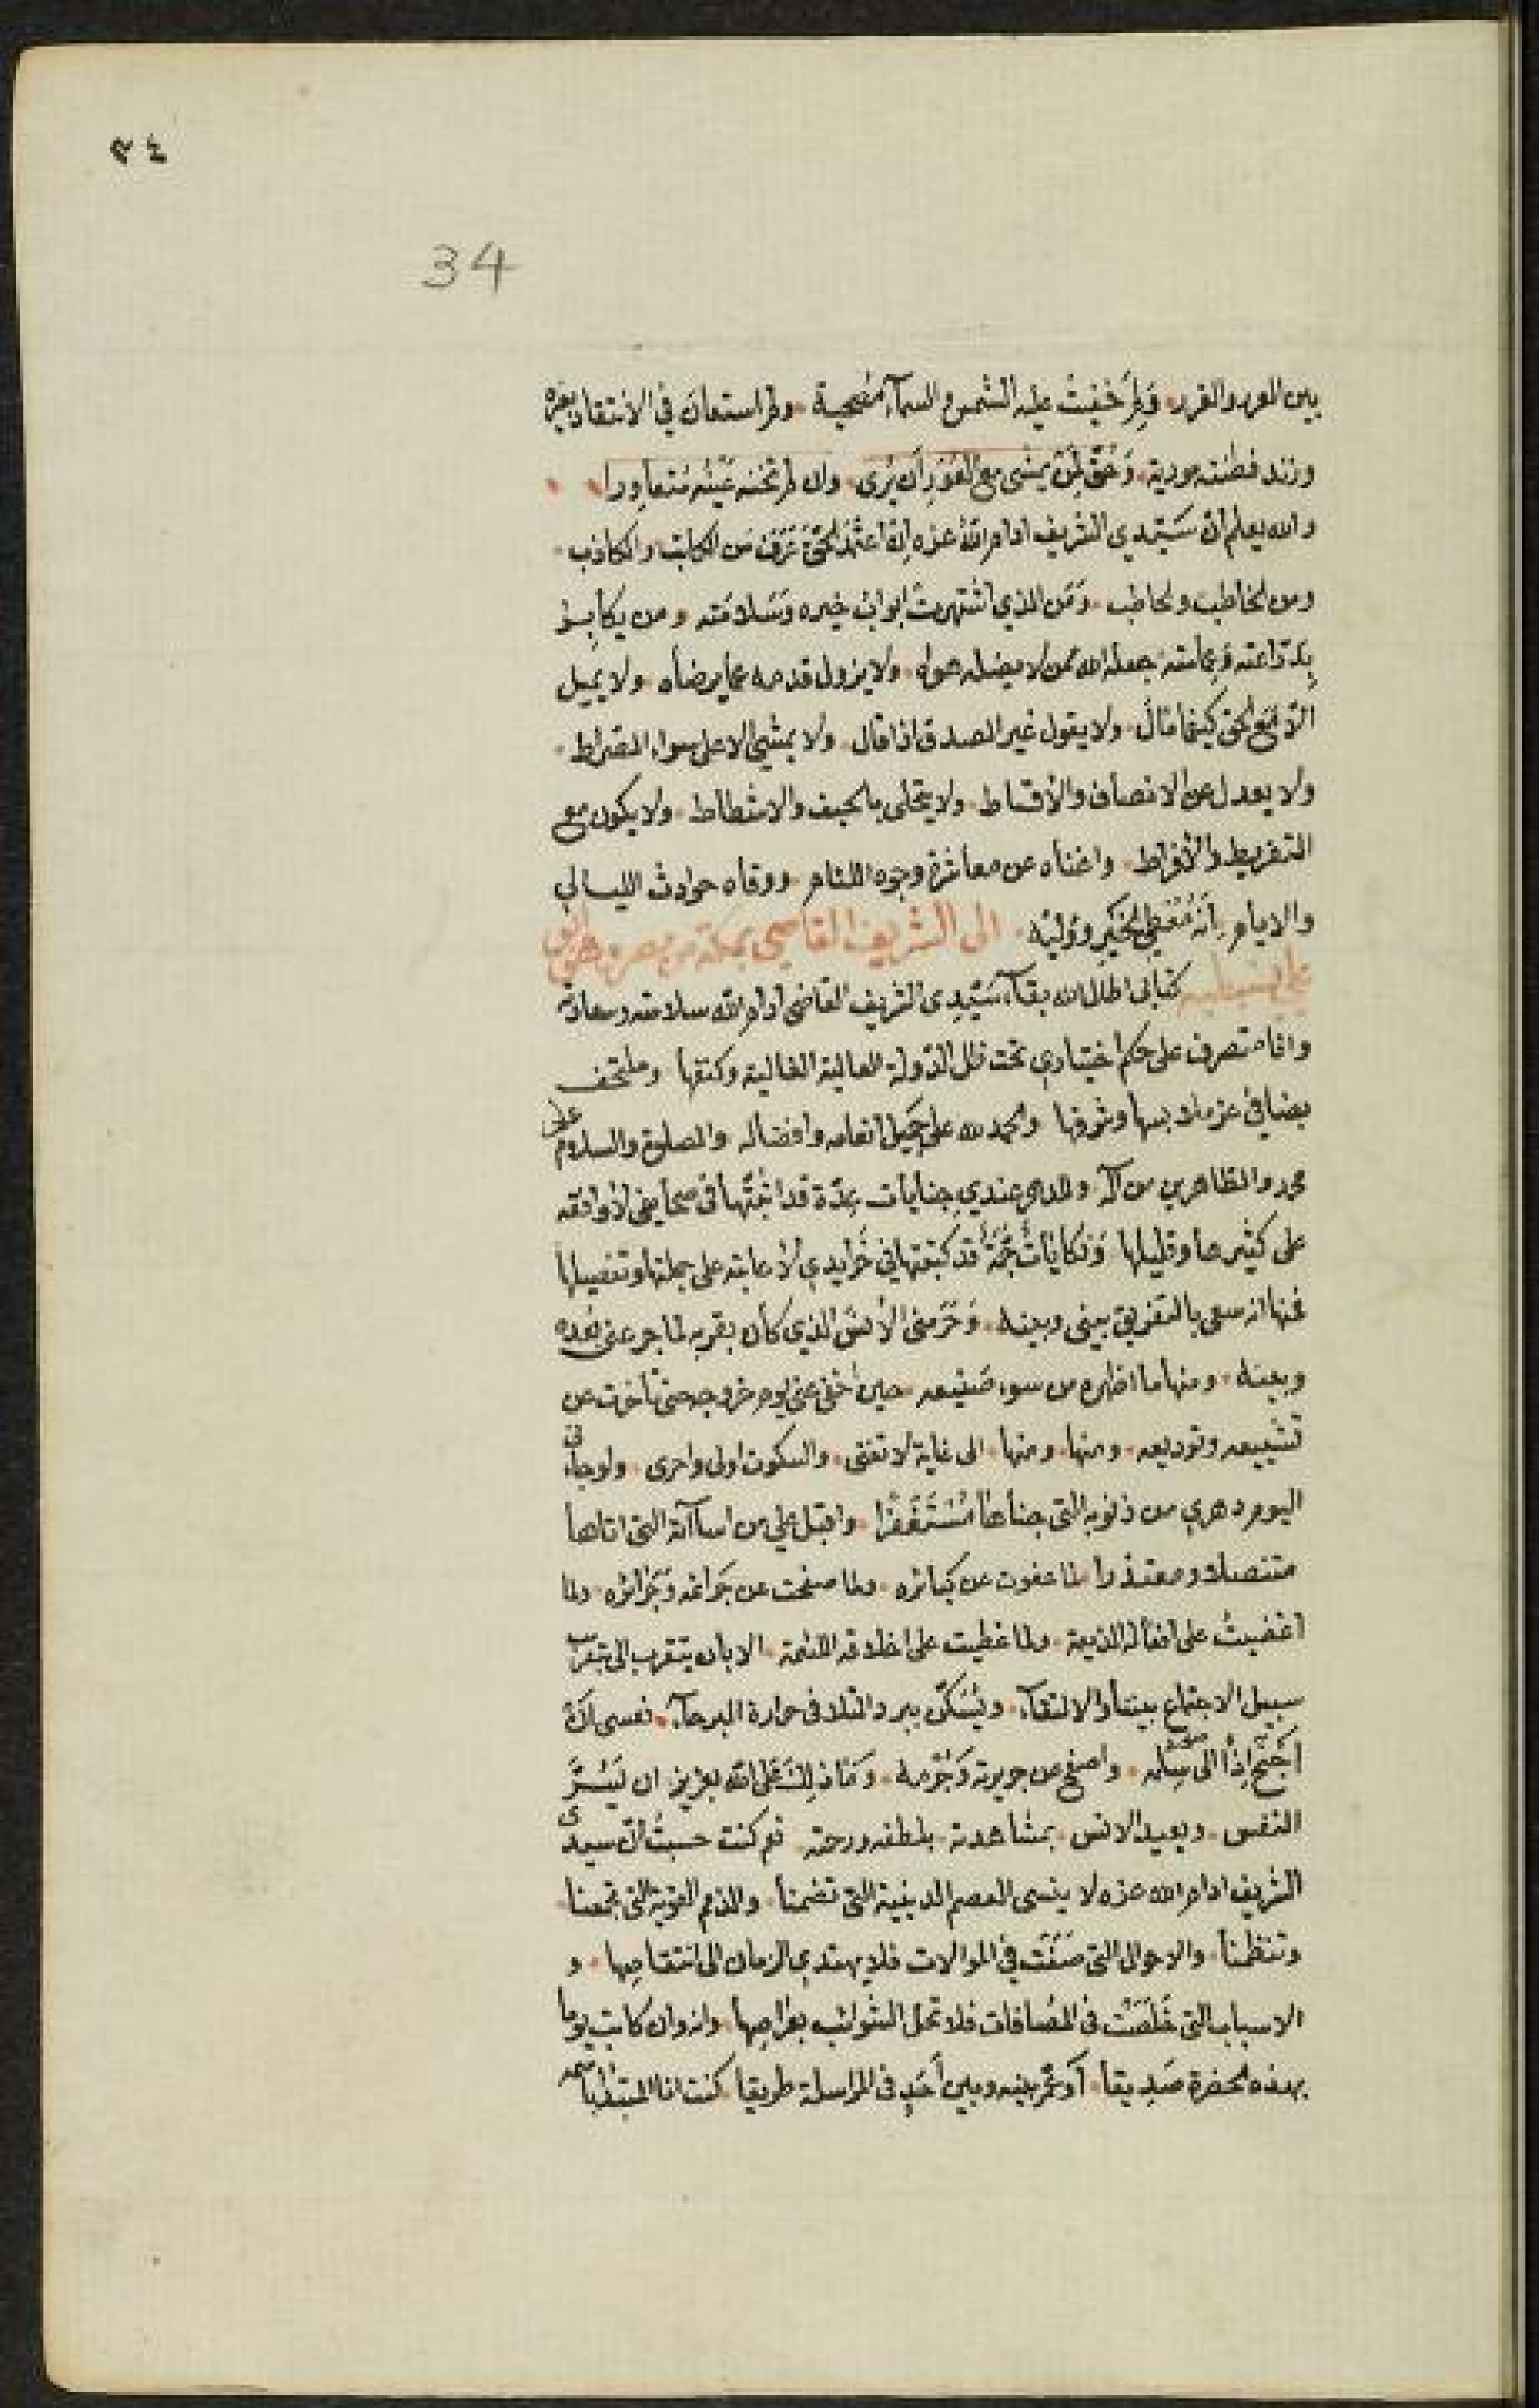 ٣٤
34
بين العرد والقرد. ولم خفيت عليه الشمس والسمآء مضحية. ولم استعان في الانتقاد بغيره
وزند فطنته مورية. وحق لمن يمشي مع العور ان يرى. وان لم تخنه عينه متعاورا
والله يعلم ان سيدي الشريف ادام الله عزه ان اعتمد الحق عرف من الكاتب والكاذب.
ومن الخاطب والحاطب. ومن الذي اشتهرت ابواب خيره وسلامته ومن يكابر
جعله الله ممن لا يضله هواه. ولا يزول قدمه عما يرضاه. ولا يميل
الا مع الحق كيفما مال. ولا يقول غير الصدق اذا قال. ولا يمشي الا على سواء الصراط.
ولا يعدل عن الانصاف والأقساط. ولا يتحلى بالحيف والاشطاط. ولا يكون مع
التفريط والأفراط. واغناه عن معاشرة وجوه اللئام. ووقاه حوادث الليالي
والايام. انه معطي الخير ووليه. الى الشريف القاضي بمكة من مصر
كتابي اطال الله بقآء سيدي الشريف القاضي ادام الله سلامته وسعادته
وانا متصرف على حكم اختياري تحت ظل الدولة العالية الغالية وكنفها. وملتحف
بضافي عز ملابسها وشرفها والحمد لله على جميل انعامه وافضاله والصلوة والسلام على
محمد والطاهرين من آله وللدهر عندي جنايات عدة قد اثبتها في صحايفي لأوافقه
على كثيرها وقليلها ونكايات جمة قد كتبتها في جرايدي لأعاتبه على جملتها وتفصيلها
فمنها انه سعى بالتفريق بيني وبينه. وحرمني الأنس الذي كان بقربه لما جرعني بعده
وبينه. ومنها ما اظهره من سوء صنيعه. حين اخفى عني يوم خروجه حتى تأخرت عن
تشييعه وتوديعه. ومنها. ومنها. الى غاية لا تفنى. والسكوت اولى واحرى. ولو جاءني
اليوم دهري من ذنوبه التي جناها مستغفرا. واقبل علي من اسآآته التي اتاها
متنصلا ومعتذرا لما عفوت عن كبائره. ولما صفحت عن جرائمه وجرائره. ولما
اغضيت على افعاله الذميمة. ولما غطيت على اخلاقه اللئيمة. الا بان يتقرب الى بتقريب
سبيل الاجتماع بيننا والالتقآء. ويسكن ببرد التلاقي حرارة البرحآء. فعسى
اجنح اذا الى سلمه. واصفح عن جريرته وجرمه. وما ذلك على الله بعزيز. ان يسر
النفس. ويعيد الانس. بمشاهدته. بلطفه ورحمته. نعم كنت حسبت ان سيدي
الشريف ادام الله عزه لا ينسى العصم الدينية التي تضمنا. والذمم القوية التي تجمعنا.
وتنظمنا. والاحوال التي صفت في الموالات فلا يهتدي الزمان الى انتقاصها. و
الاسباب التي خلصت في المصافات فلا تحل الشوائب بعراصها. وانه وان كاتب يوما
بهذه الحضرة صديقا. او عمر بينه وبين احد في المراسلة طريقا. كنت انا المبتدا باسمه